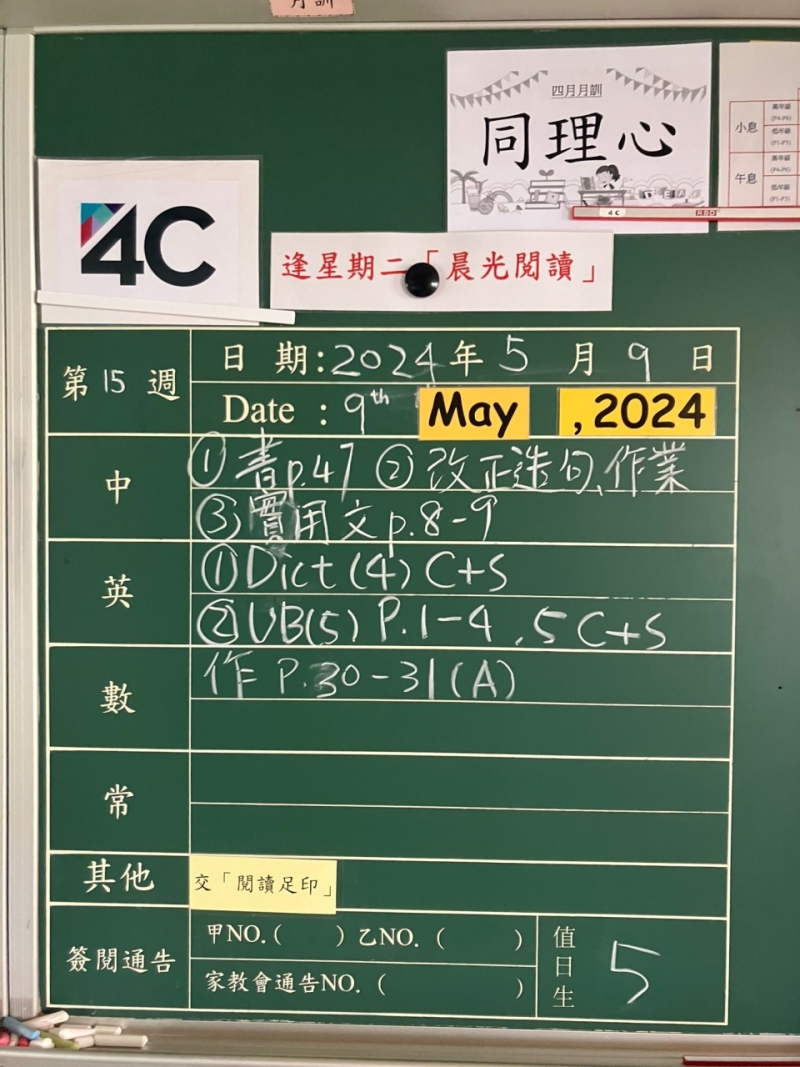 月訓
四月月訓
同理心
小息
高年級
(P4-P6)
低年級
(P1-P3)
午息
高年級
(P4-P6)
低年級
(P1-P3)
4C
4C
逢星期二「晨光閱讀」
第15週
日期:2024年5月9日
Date : 9th May , 2024
中
①書p.47 ②改正造句、作業
③實用文p.8-9
英
①Dict(4) C+S
②UB(5) P.1-4 , 5 C+S
數
作 P.30-31(A)
常
其他
交「閱讀足印」
簽閱通告
甲NO.( ) 乙NO. ( )
家教會通告NO. ( )
值日生
5